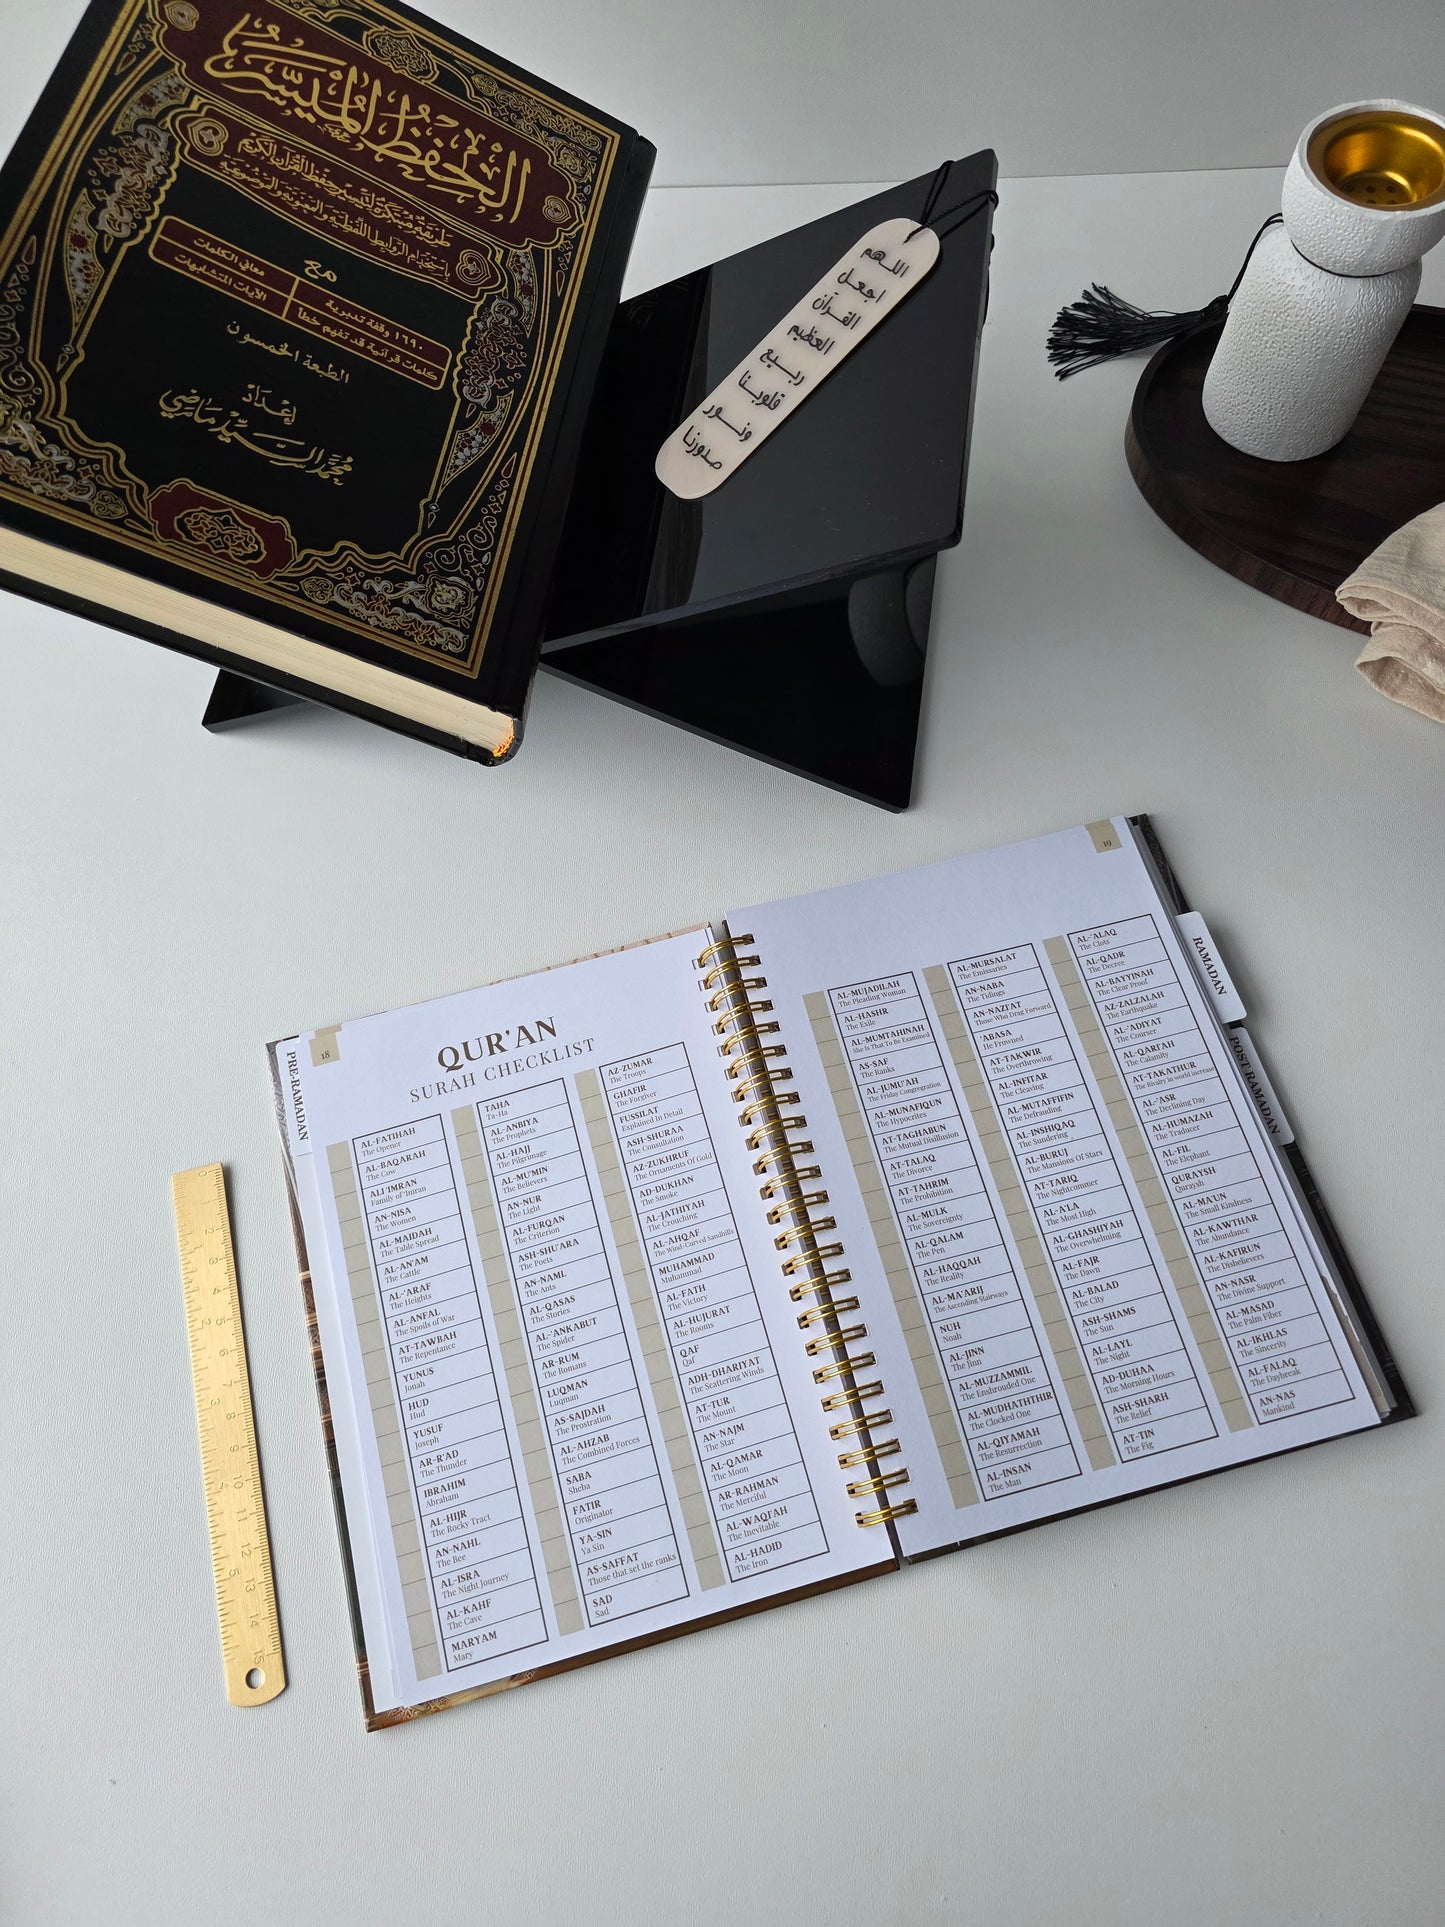 الحفظ الميسر
طريقة مبتكرة لتيسير حفظ القرآن الكريم
باستخدام الروابط اللفظية والمعنوية والموضوعية
مع
١٦٩٠ وقفة تدبرية
معاني الكلمات
كلمات قرآنية قد تفهم خطأ
الآيات المتشابهات
الطبعة الخمسون
إعداد
محمد السيد ماضي
اللهم
اجعل
القرآن
العظيم
ربيع
قلوبنا
ونور
صدورنا
PRE-RAMADAN
18
QUR'AN
SURAH CHECKLIST
AL-FATIHAH
The Opener
AL-BAQARAH
The Cow
ALI 'IMRAN
Family of 'Imran
AN-NISA
The Women
AL-MAIDAH
The Table Spread
AL-AN'AM
The Cattle
AL-'ARAF
The Heights
AL-ANFAL
The Spoils of War
AT-TAWBAH
The Repentance
YUNUS
Jonah
HUD
Hud
YUSUF
Joseph
AR-R'AD
The Thunder
IBRAHIM
Abraham
AL-HIJR
The Rocky Tract
AN-NAHL
The Bee
AL-ISRA
The Night Journey
AL-KAHF
The Cave
MARYAM
Mary
TAHA
Ta-Ha
AL-ANBIYA
The Prophets
AL-HAJJ
The Pilgrimage
AL-MU'MIN
The Believers
AN-NUR
The Light
AL-FURQAN
The Criterion
ASH-SHU'ARA
The Poets
AN-NAML
The Ants
AL-QASAS
The Stories
AL-'ANKABUT
The Spider
AR-RUM
The Romans
LUQMAN
Luqman
AS-SAJDAH
The Prostration
AL-AHZAB
The Combined Forces
SABA
Sheba
FATIR
Originator
YA-SIN
Ya Sin
AS-SAFFAT
Those that set the ranks
SAD
Sad
AZ-ZUMAR
The Troops
GHAFIR
The Forgiver
FUSSILAT
Explained In Detail
ASH-SHURAA
The Consultation
AZ-ZUKHRUF
The Ornaments Of Gold
AD-DUKHAN
The Smoke
AL-JATHIYAH
The Crouching
AL-AHQAF
The Wind-Curved Sandhills
MUHAMMAD
Muhammad
AL-FATH
The Victory
AL-HUJURAT
The Rooms
QAF
Qaf
ADH-DHARIYAT
The Scattering Winds
AT-TUR
The Mount
AN-NAJM
The Star
AL-QAMAR
The Moon
AR-RAHMAN
The Merciful
AL-WAQI'AH
The Inevitable
AL-HADID
The Iron
19
AL-MUJADILAH
The Pleading Woman
AL-HASHR
The Exile
AL-MUMTAHINAH
She Is That To Be Examined
AS-SAF
The Ranks
AL-JUMU'AH
The Friday Congregation
AL-MUNAFIQUN
The Hypocrites
AT-TAGHABUN
The Mutual Disillusion
AT-TALAQ
The Divorce
AT-TAHRIM
The Prohibition
AL-MULK
The Sovereignty
AL-QALAM
The Pen
AL-HAQQAH
The Reality
AL-MA'ARIJ
The Ascending Stairways
NUH
Noah
AL-JINN
The Jinn
AL-MUZZAMMIL
The Enshrouded One
AL-MUDHATHTHIR
The Clocked One
AL-QIYAMAH
The Resurrection
AL-INSAN
The Man
AL-MURSALAT
The Emissaries
AN-NABA
The Tidings
AN-NAZI'AT
Those Who Drag Forward
'ABASA
He Frowned
AT-TAKWIR
The Overthrowing
AL-INFITAR
The Cleaving
AL-MUTAFFIFIN
The Defrauding
AL-INSHIQAQ
The Sundering
AL-BURUJ
The Mansions Of Stars
AT-TARIQ
The Nightcommer
AL-A'LA
The Most High
AL-GHASHIYAH
The Overwhelming
AL-FAJR
The Dawn
AL-BALAD
The City
ASH-SHAMS
The Sun
AL-LAYL
The Night
AD-DUHAA
The Morning Hours
ASH-SHARH
The Relief
AT-TIN
The Fig
AL-'ALAQ
The Clots
AL-QADR
The Decree
AL-BAYYINAH
The Clear Proof
AZ-ZALZALAH
The Earthquake
AL-'ADIYAT
The Courser
AL-QARI'AH
The Calamity
AT-TAKATHUR
The Rivalry in world increase
AL-'ASR
The Declining Day
AL-HUMAZAH
The Traducer
AL-FIL
The Elephant
QURAYSH
Quraysh
AL-MA'UN
The Small Kindness
AL-KAWTHAR
The Abundance
AL-KAFIRUN
The Disbelievers
AN-NASR
The Divine Support
AL-MASAD
The Palm Fiber
AL-IKHLAS
The Sincerity
AL-FALAQ
The Daybreak
AN-NAS
Mankind
RAMADAN
POST RAMADAN
0 2 3 4 5 6 7 8 9 10 11 12 13 14 15